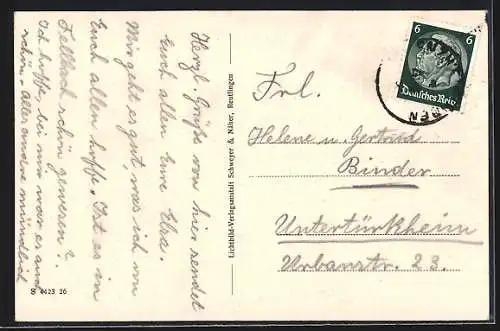 Herzl. Grüße von hier sendet
Euch allen Eure Elsa.
Mir geht es gut, was ich von
Euch allen hoffe. Ist es in
Fellbach schön gewesen?
Ich hoffe, bei mir war es auch
schön. Alles andere mündlich
S 4423 26
Lichtbild-Verlagsanstalt Schweyer & Näher, Reutlingen
6 6
Deutsches Reich
GEN
Frl.
Helene u. Gertrud
Binder
Untertürkheim
Urbanstr. 23.